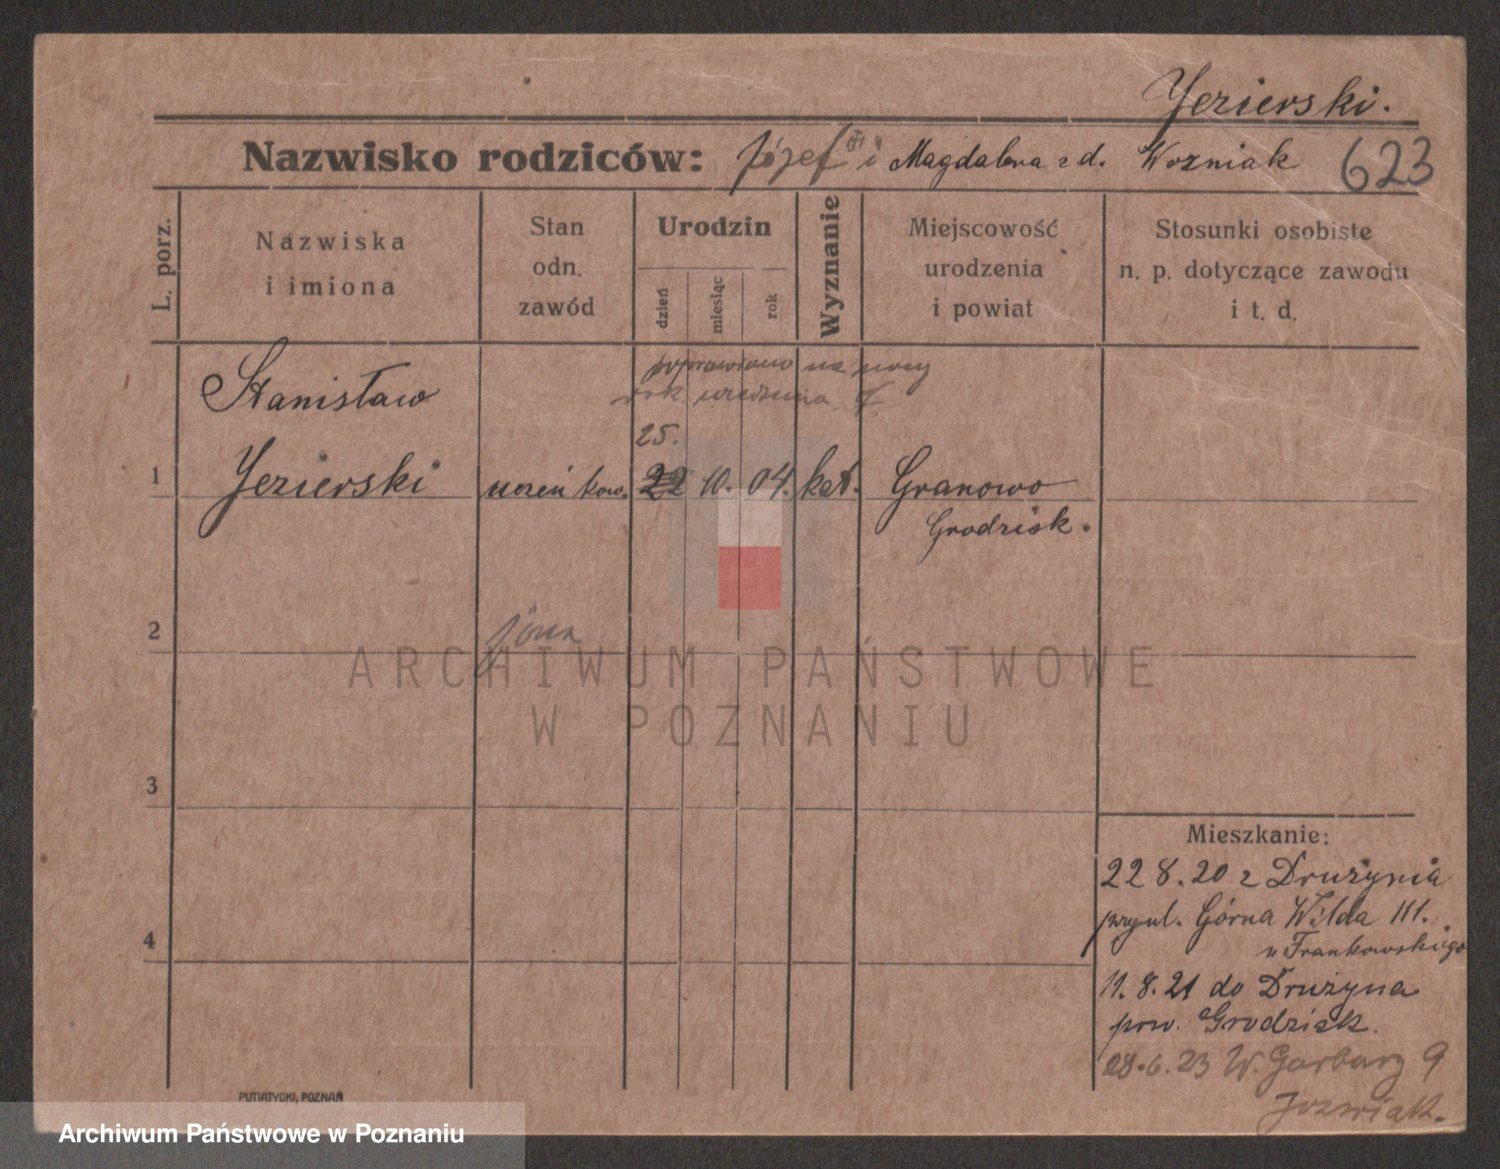 Jezierski.
Nazwisko rodziców: Józef i Magdalena z d. Woźniak 623
L. porz.
Nazwiska
i imiona
Stan
odn.
zawód
Urodzin
dzień
miesiąc
rok
Wyznanie
Miejscowość
urodzenia
i powiat
Stosunki osobiste
n. p. dotyczące zawodu
i t. d.
poprawiono na nowy
rok urodzenia
Stanisław
25.
1 Jezierski uczeń kow. 22 10. 04. kat. Granowo
Grodzisk.
2
ARCHIWUM PAŃSTWOWE
W POZNANIU
3
Mieszkanie:
22 8. 20 z Drużynia
przy ul. Górna Wilda 111.
u Frankowskiego
4
11. 8. 21 do Drużyna
pow. Grodzisk.
28. 6. 23 W. Garbary 9
Jozwiak.
PUTIATYCKI, POZNAŃ
Archiwum Państwowe w Poznaniu